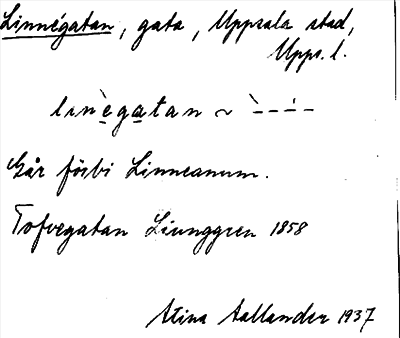 Linnégatan, gata, Uppsala stad,
Upps. l.
linègatan ~ `---́-
Går förbi Linneanum.
Tofvegatan Ljunggren 1858
Stina Hallander 1937